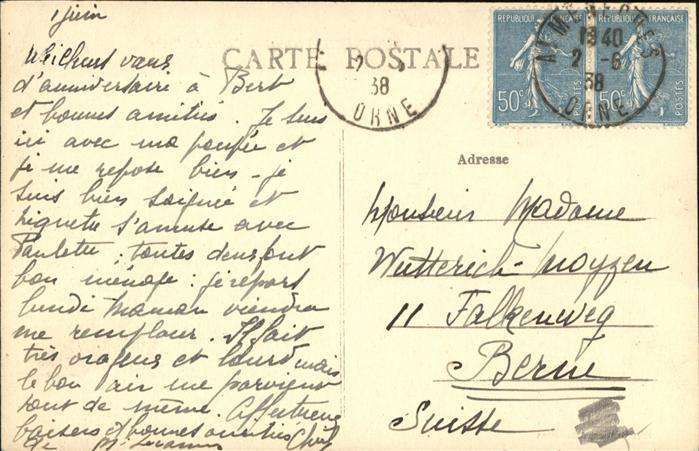 1 juin
vœux
d'anniversaire à Bert
et bonnes amitiés. Je suis
ici avec ma poupée et
je me repose bien - je
suis bien soignée et
s'amuse avec
Paulette; toutes deux font
bon ménage: je repars
lundi Maman viendra
me remplacer. Il fait
très orageux et lourd mais
le bon air me parvient
tout de même. Affectueux
baisers et bonnes amitiés
CARTE POSTALE
2
38
ORNE
RÉPUBLIQUE FRANÇAISE
50c
POSTES
RÉPUBLIQUE FRANÇAISE
50c
POSTES
1840
2 -6
38
ORNE
Adresse
Monsieur Madame
Wutterich-Moyzen
11 Falkenweg
Berne
Suisse